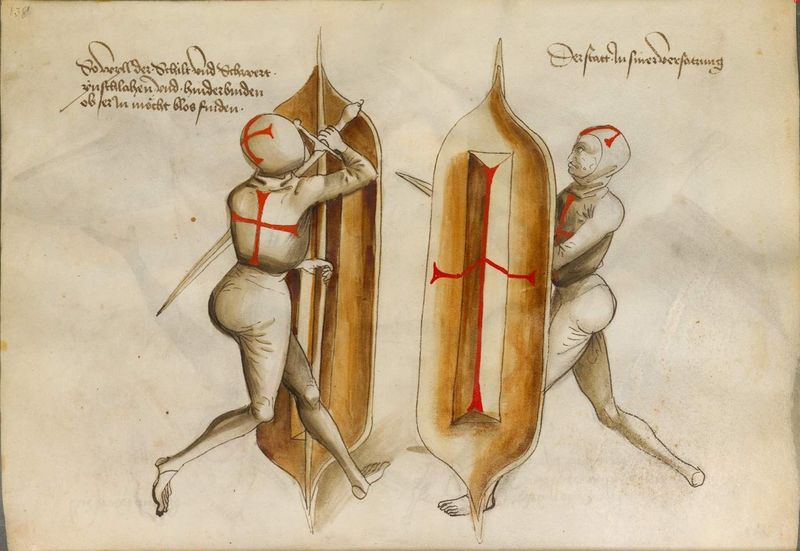 138
So wyll der Schilt und Schwert
uß schlahen und hinderbinden
ob er In möcht blos finden.
Der statt In siner versatzung